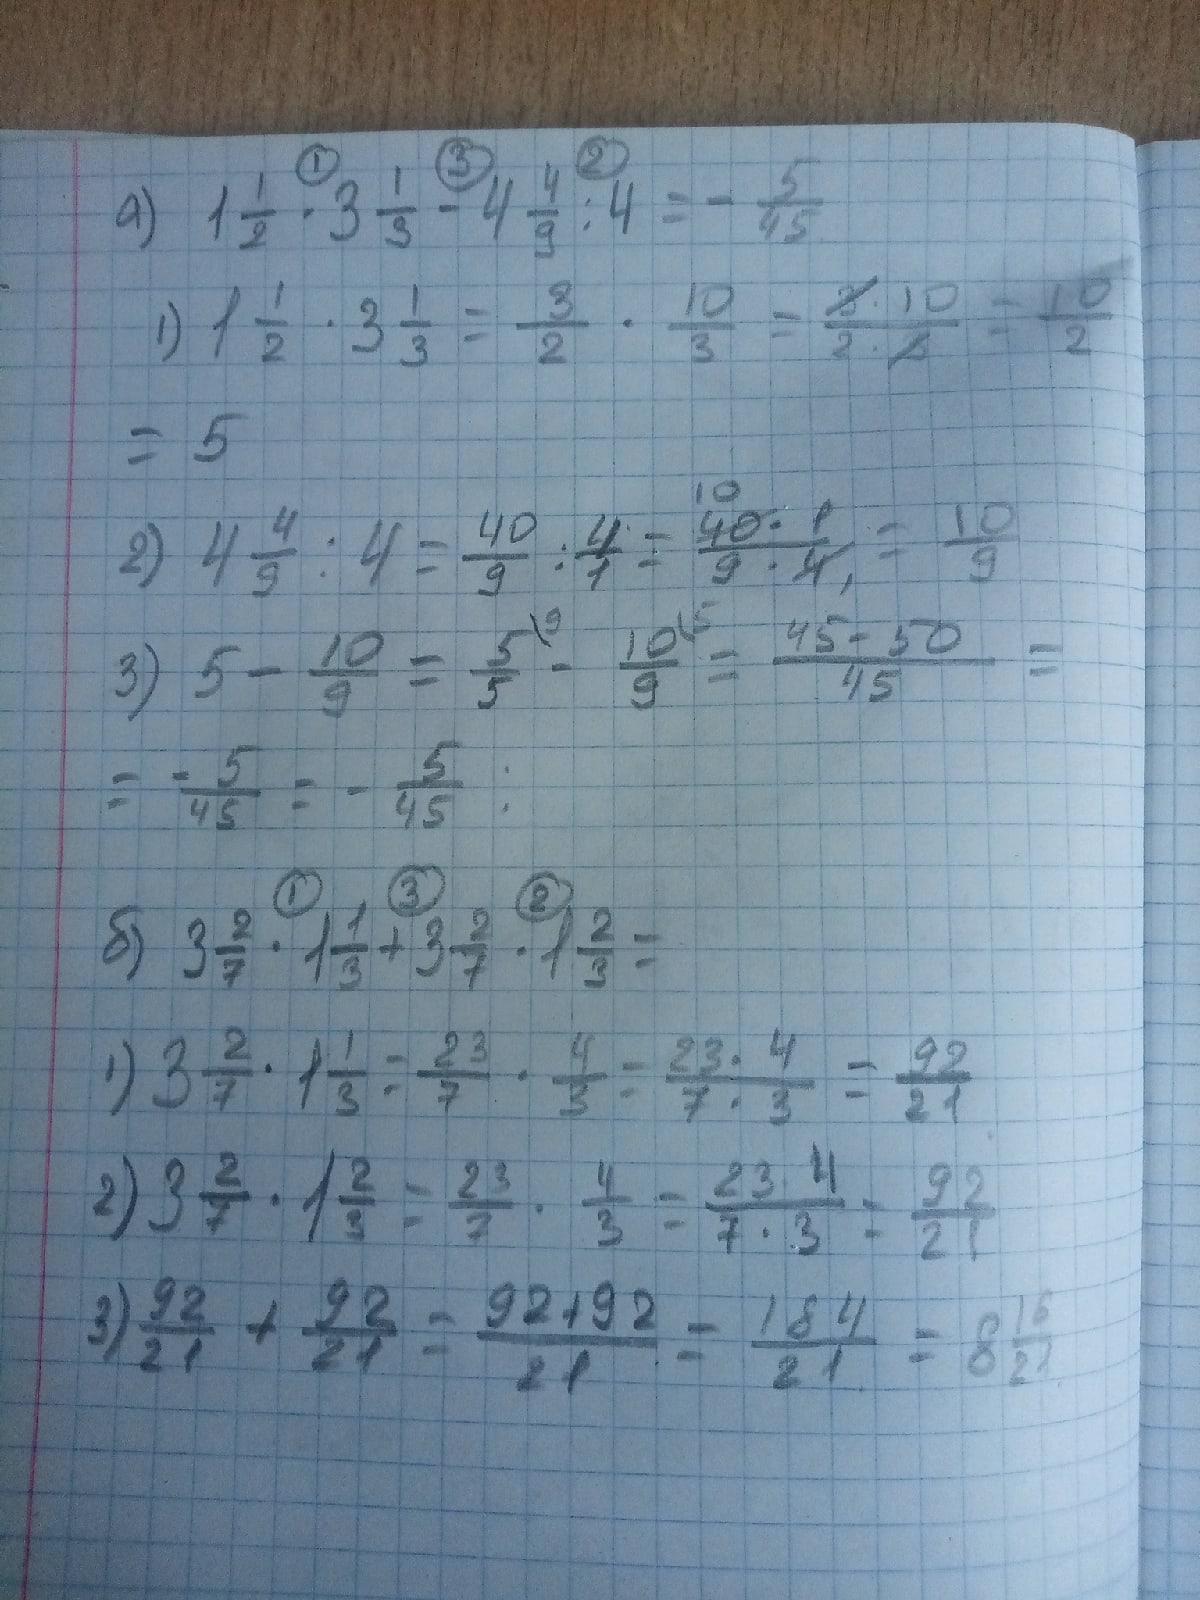 ① ③ ②
а) 1 1/2 · 3 1/3 - 4 4/9 : 4 = - 5/45
1) 1 1/2 · 3 1/3 = 3/2 · 10/3 = 3·10/2·3 = 10/2
= 5
2) 4 4/9 : 4 = 40/9 : 4/1 = 40·1/9·4 = 10/9
3) 5 - 10/9 = 5/5 \9 - 10/9 \5 = 45-50/45 =
= -5/45 = - 5/45 :
① ③ ②
б) 3 2/7 · 1 1/3 + 3 2/7 · 1 2/3 =
1) 3 2/7 · 1 1/3 = 23/7 · 4/3 = 23·4/7·3 = 92/21
2) 3 2/7 · 1 2/3 = 23/7 · 4/3 = 23·4/7·3 = 92/21
3) 92/21 + 92/21 = 92+92/21 = 184/21 = 8 16/21